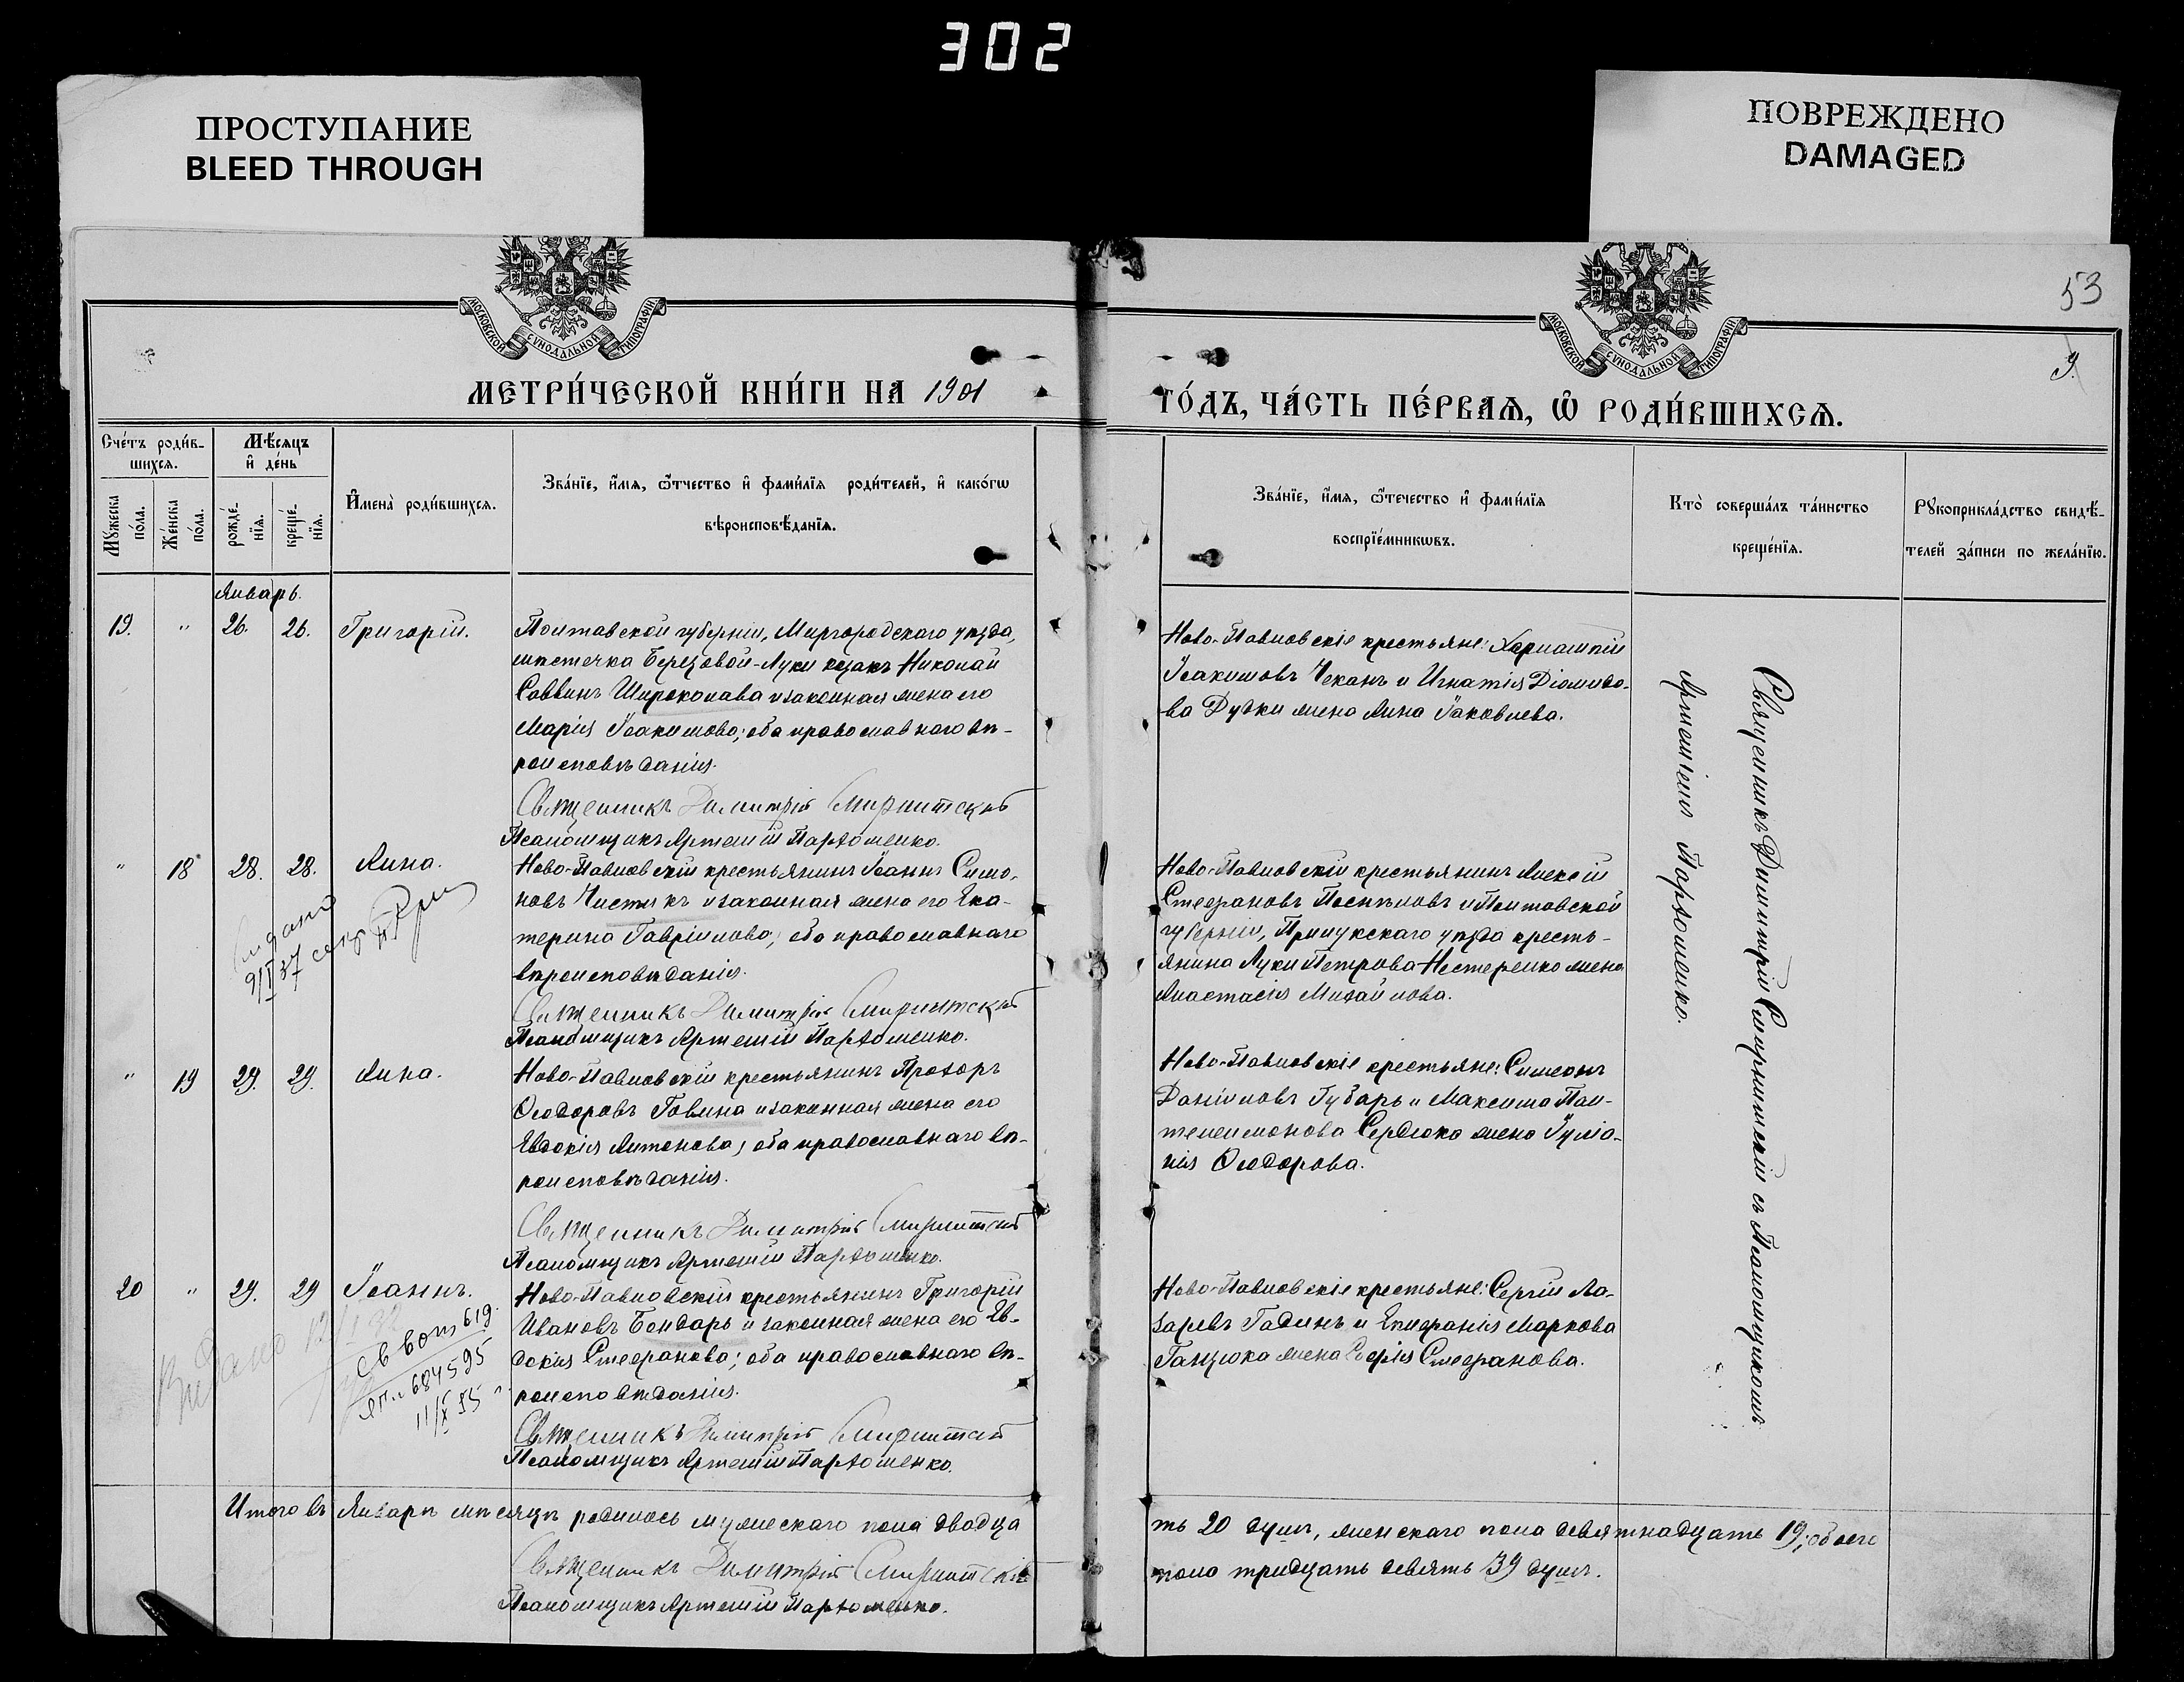 302
ПРОСТУПАНИЕ
BLEED THROUGH
ПОВРЕЖДЕНО
DAMAGED
МОСКОВСКОЙ СѴНОДАЛЬНОЙ ТИПОГРАФІИ
МОСКОВСКОЙ СѴНОДАЛЬНОЙ ТИПОГРАФІИ
53
9.
МЕТРИ́ЧЕСКОЙ КНИ́ГИ НА 1901
ГО́ДЪ, ЧА́СТЬ ПЕ́РВАѦ, Ѡ҆ РОДИ́ВШИХСѦ.
Сче́тъ роди́в-
шихсѧ.
Мѣ́сѧцъ
и҆ де́нь
Мꙋ́жеска
по́ла.
Же́нска
по́ла.
рожде́-
нїѧ.
креще́-
нїѧ.
И҆мена̀ роди́вшихсѧ.
Зва́нїе, и҆́мѧ, ѻ҆́тчество и҆ фами́лїѧ роди́телей, и҆ како́гѡ
вѣроисповѣ́данїѧ.
Зва́нїе, и҆́мѧ, ѻ҆́течество и҆ фами́лїѧ
воспрїе́мникѡвъ.
Кто̀ соверша́лъ та́инство
креще́нїѧ.
Рꙋкоприкла́дство свидѣ́-
телей за́писи по жела́нїю.
Январь.
19. " 26. 26. Григорій.
Полтавской губерніи, Миргородскаго уѣзда,
мѣстечка Березовой-Луки козакъ Николай
Саввинъ Широколава и законная жена его
Марія Іоакимова; оба православнаго вѣ-
роисповѣданія.
Священникъ Димитрій Смирнитскій
Псаломщикъ Артемій Пархоменко.
Ново-Павловскіе крестьяне: Харлампій
Іоакимовъ Чеканъ и Игнатія Діомидо-
ва Дудки жена Анна Іаковлева.
" 18 28. 28. Анна.
Ново-Павловскій крестьянинъ Іоаннъ Симо-
новъ Чистикъ и законная жена его Ека-
терина Гавріилова; оба православнаго
вѣроисповѣданія.
Священникъ Димитрій Смирнитскій
Псаломщикъ Артемій Пархоменко.
Ново-Павловскій крестьянинъ Алексій
Стефановъ Поспѣловъ и Полтавской
губерніи, Прилукскаго уѣзда кресть-
янина Луки Петрова Нестеренко жена
Анастасія Михайлова.
" 19 29. 29. Анна.
Ново-Павловскій крестьянинъ Прохоръ
Ѳеодоровъ Говина и законная жена его
Евдокія Антонова; оба православнаго вѣ-
роисповѣданія.
Священникъ Димитрій Смирнитскій
Псаломщикъ Артемій Пархоменко.
Ново-Павловскіе крестьяне: Симеонъ
Даніиловъ Губарь и Максима Пан-
телеимонова Сердюка жена Іуліа-
нія Ѳеодорова.
20 " 29. 29 Іоаннъ.
Св вот 619
яп. 684595
11/X 55
Ново-Павловскій крестьянинъ Григорій
Ивановъ Бондарь и законная жена его Ев-
докія Стефанова; оба православнаго вѣ-
роисповѣданія.
Священникъ Димитрій Смирнитскій
Псаломщикъ Артемій Пархоменко.
Ново-Павловскіе крестьяне: Сергій Ла-
заревъ Гадинъ и Епифанія Маркова
Ганзюка жена Софія Стефанова.
Священникъ Димитрій Смирнитскій съ Псаломщикомъ
Артеміемъ Пархоменко.
Итого въ Январѣ мѣсяцѣ родилось мужескаго пола двадца
ть 20 душъ, женскаго пола девятнадцать 19, обоего
пола тридцать девять 39 душъ.
Священникъ Димитрій Смирнитскій
Псаломщикъ Артемій Пархоменко.